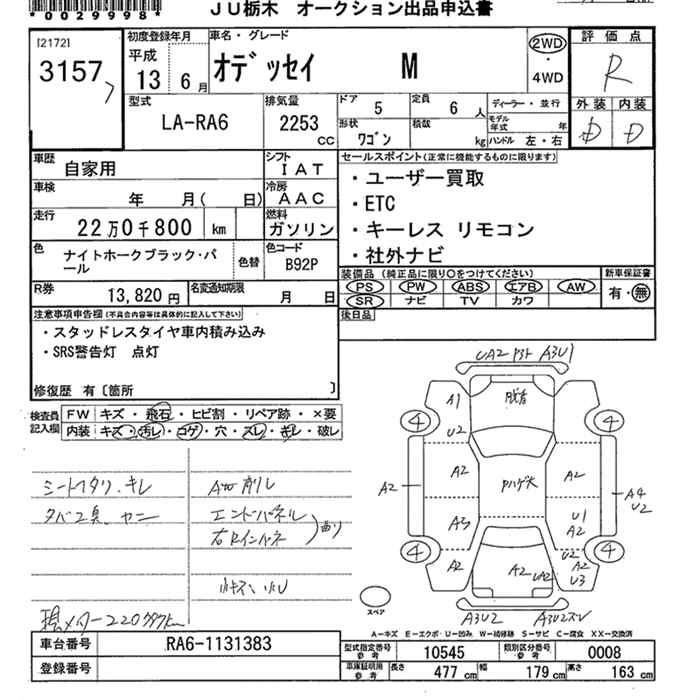 *0029998*
JU栃木 オークション出品申込書
[2172]
3157
初度登録年月
平成
13 6月
車名・グレード
オデッセイ M
2WD
・
4WD
評価点
R
型式
LA-RA6
排気量
2253 cc
ドア 5
定員 6人
形状 ワゴン
積載 kg
ディーラー・並行
モデル年式 年
ハンドル 左・右
外装 内装
D D
車歴 自家用
シフト IAT
車検 年 月( 日)
冷房 AAC
走行 22万0千800 km
燃料 ガソリン
色 ナイトホークブラック・パール
色替
色コード B92P
R券 13,820円
名変通知期限 月 日
セールスポイント(正常に機能するものに限ります)
・ユーザー買取
・ETC
・キーレス リモコン
・社外ナビ
装備品(純正品に限り○をつけてください)
PS PW ABS エアB AW
SR ナビ TV カワ
新車保証書
有・無
後日品
注意事項申告欄(不具合内容等は具体的に記入して下さい)
・スタッドレスタイヤ車内積み込み
・SRS警告灯 点灯
修復歴 有〔箇所 〕
検査員記入欄
FW キズ・飛石・ヒビ割・リペア跡・×要
内装 キズ・汚レ・コゲ・穴・スレ・キレ・破レ
シートヘタリ.キレ
タバコ臭.ヤニ
エンドパネル
右Rインパネ
曲り
現メーター220797km
UA2 A3U1
A1
U2
脱着
4 4
A2
A2
Pハゲ大
A2
A4
U2
A3
U1
A2
4 4
A2
A2
UA2
U2
A2
U3
A3U2
スペア
A-キズ E-エクボ・U-凹み W-補修跡 S-サビ C-腐食 XX-交換済
車台番号 RA6-1131383
登録番号
型式指定番号 参考 10545
類別区分番号 参考 0008
車庫証明用 参考
長さ 477 cm
幅 179 cm
高さ 163 cm